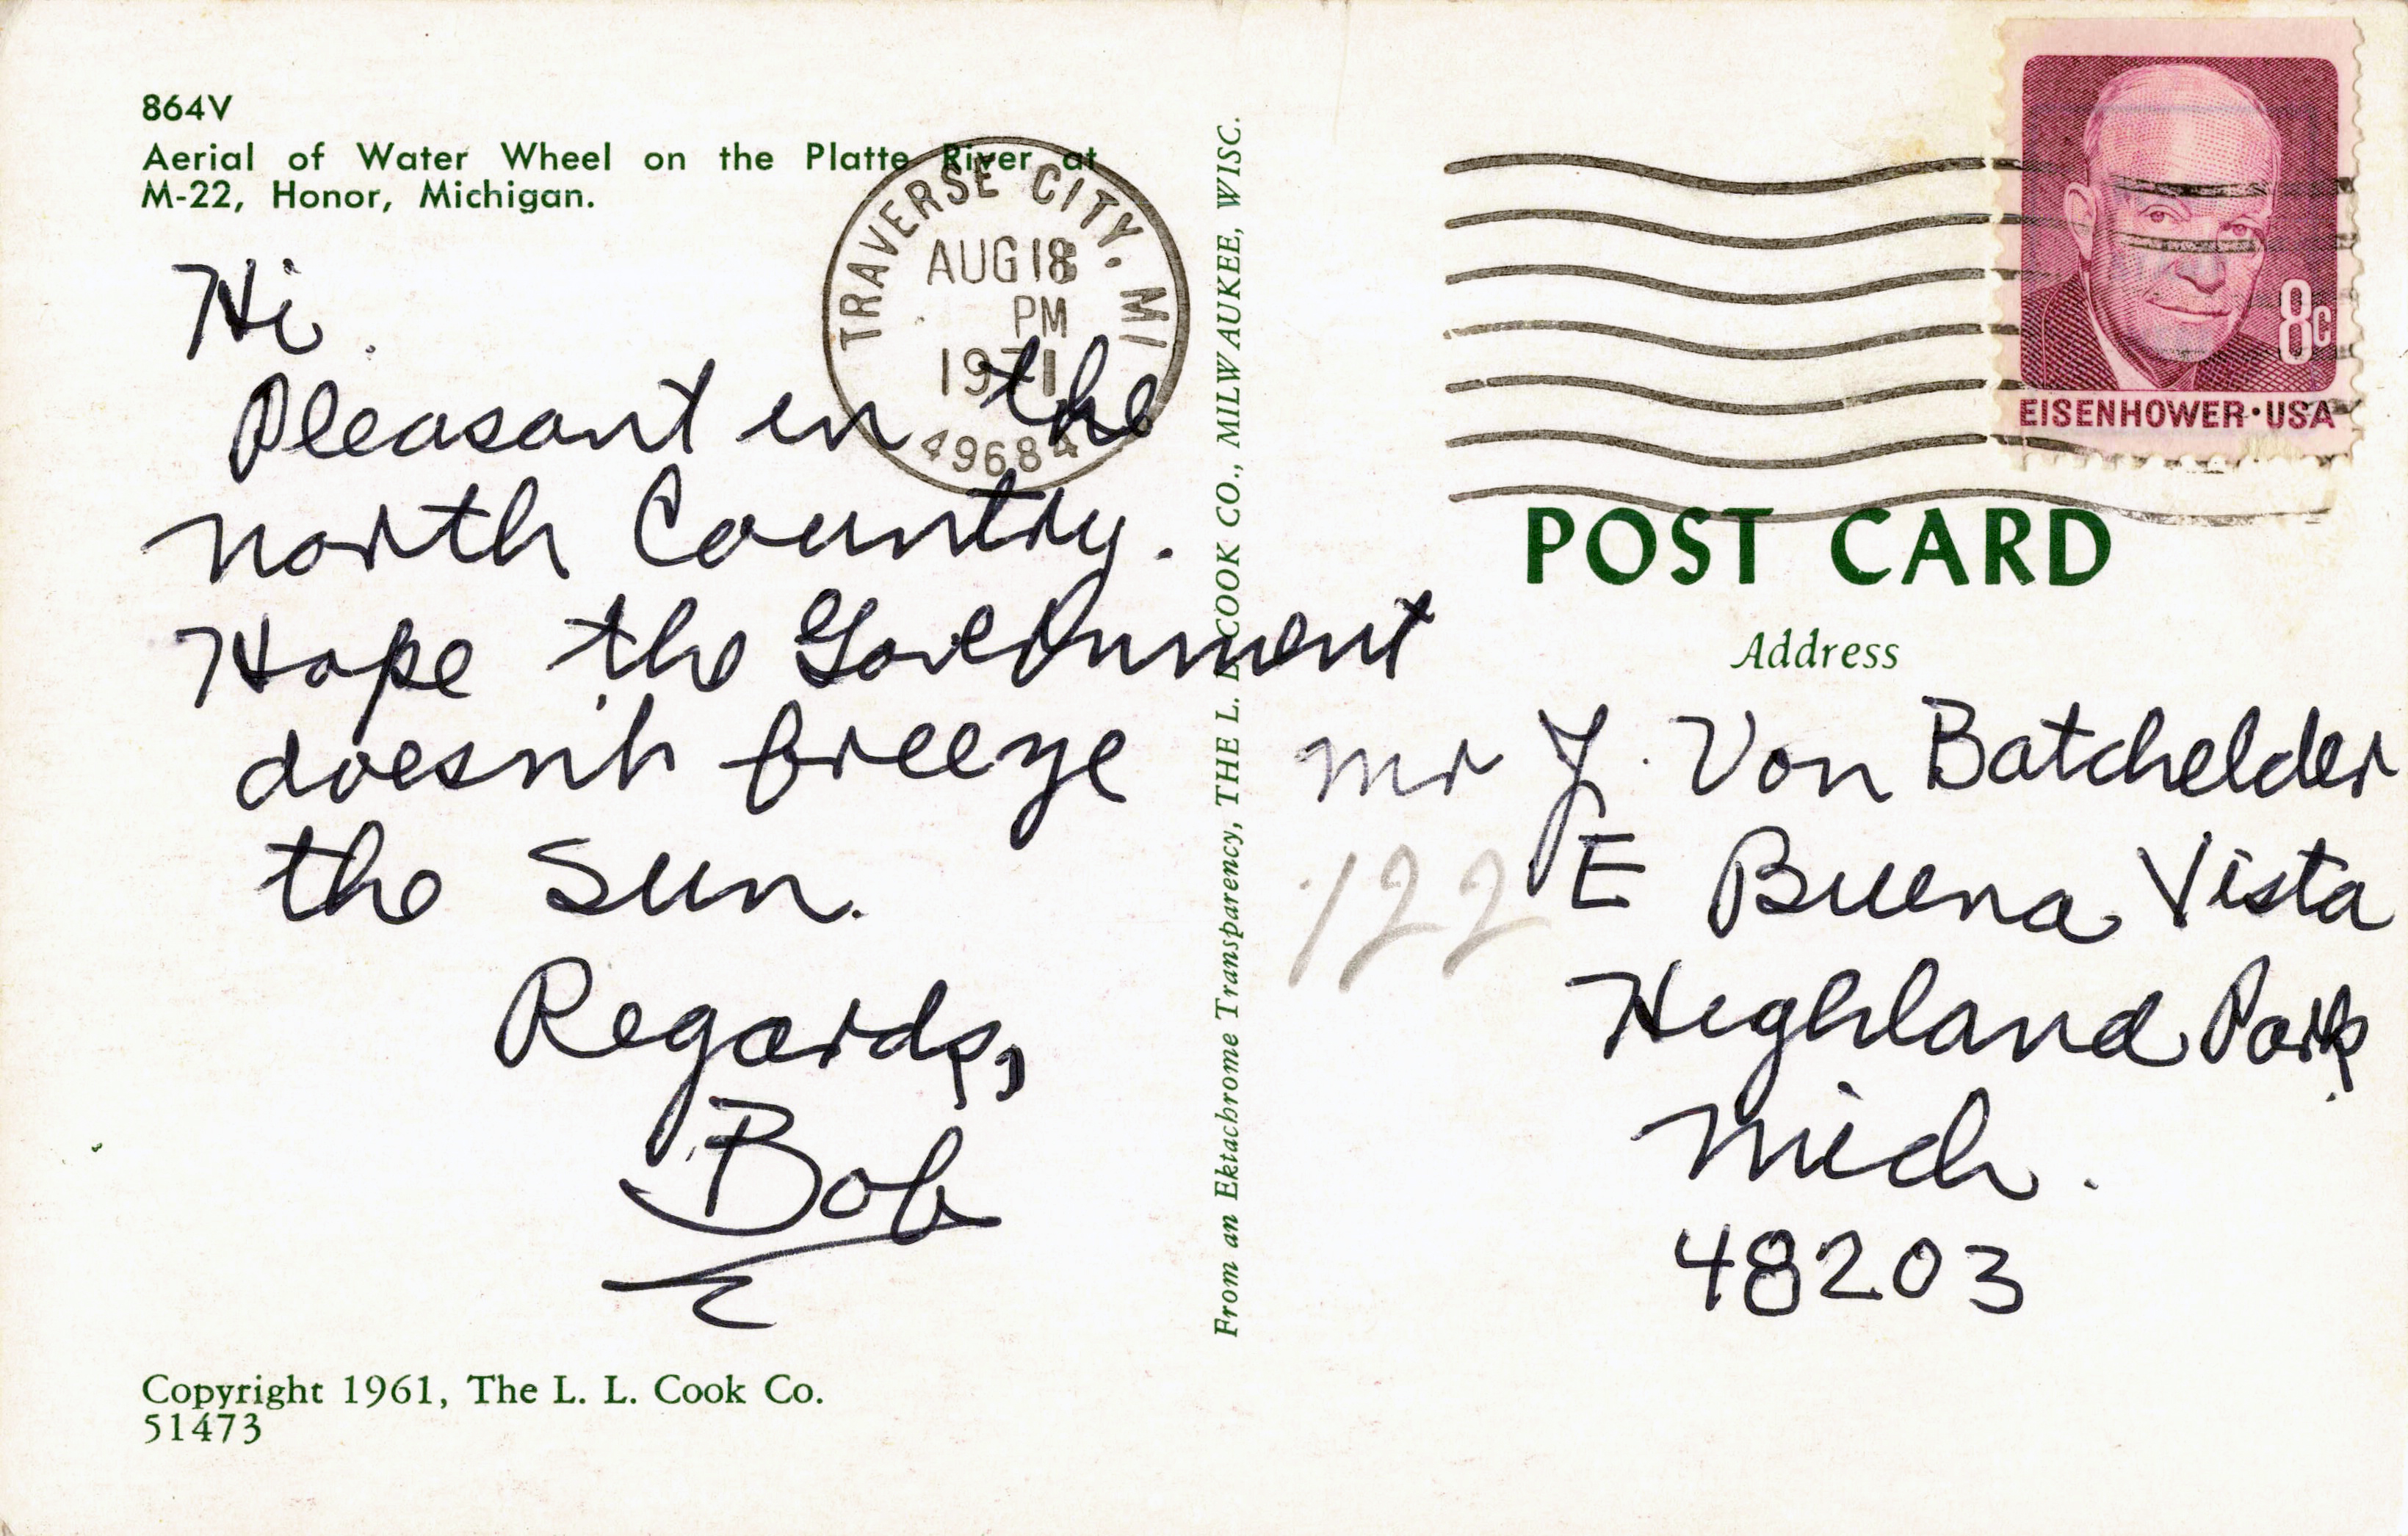 864V
Aerial of Water Wheel on the Platte River at
M-22, Honor, Michigan.
TRAVERSE CITY, MI
AUG 18
PM
1971
49684
8c
EISENHOWER·USA
Hi.
Pleasant in the
north Country.
Hope the Government
doesn't freeze
the Sun.
Regards,
Bob
From an Ektachrome Transparency, THE L. L. COOK CO., MILWAUKEE, WISC.
POST CARD
Address
Mr J. Von Batchelder
122 E Buena Vista
Highland Park
Mich.
48203
Copyright 1961, The L. L. Cook Co.
51473